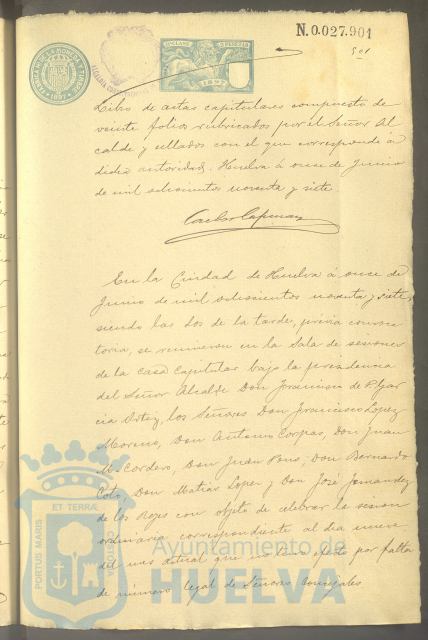 N.0.027.901
501
1897
Libro de actas capitulares compuesto de
veinte folios rubricados por el Señor Al
calde y sellados con el que corresponde á
dicha autoridad. Huelva á once de Junio
de mil ochocientos noventa y siete
En la Ciudad de Huelva á once de
Junio de mil ochocientos noventa y siete,
siendo las dos de la tarde, prévia convoca
toria, se reunieron en la Sala de sesiones
de la casa Capitular bajo la presidencia
del Señor Alcalde Don Francisco de P. Gar
cia Ortiz, los Señores Don Francisco Lopez
Moreno, Don Antonio Corpas, Don Juan
M. Cordero, Don Juan Pons, Don Bernardo
Coto, Don Matias Lopez y Don José Fernandez
de los Reyes con objeto de celebrar la sesion
ordinaria correspondiente al dia nueve
del mes actual que no tuvo efecto por falta
de número legal de Señores Concejales
PORTUS MARIS ET TERRÆ CUSTODIA
Ayuntamiento de
HUELVA